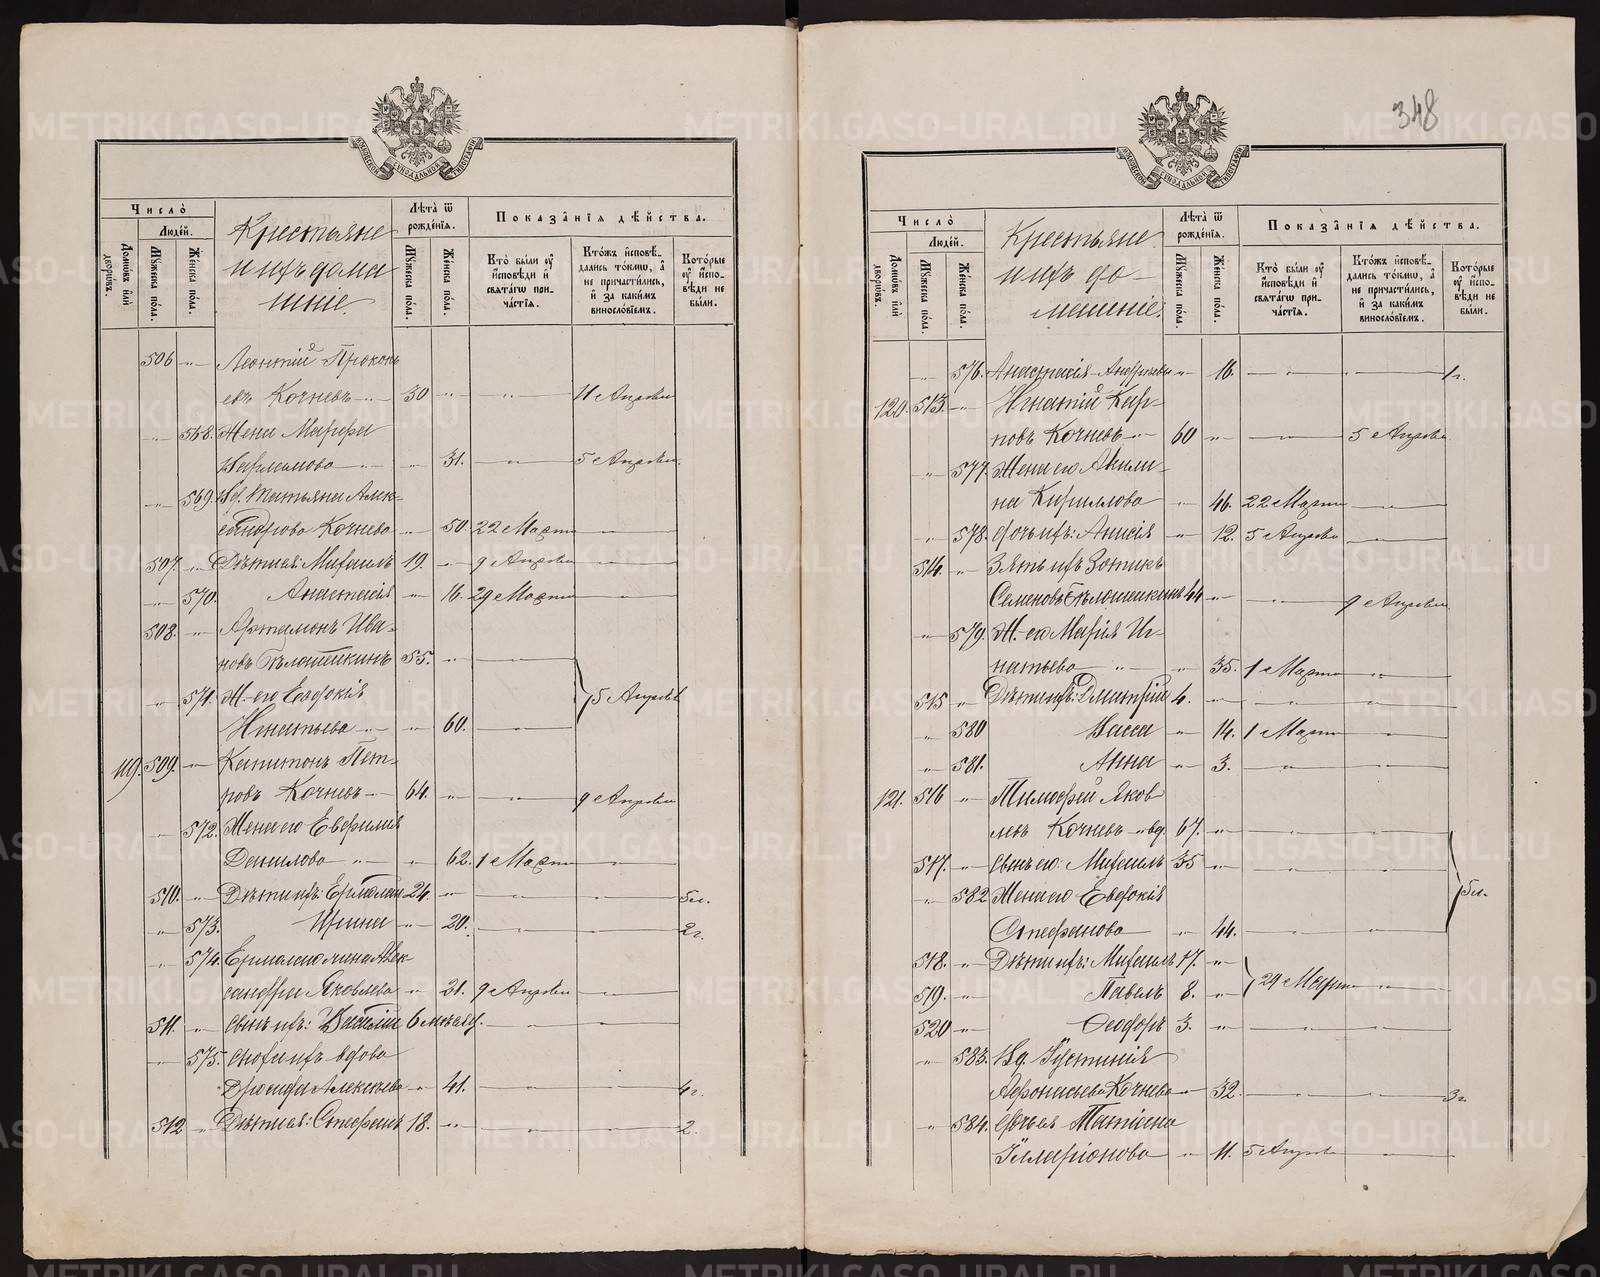 348
МОСКОВСКОЙ СѴНОДАЛЬНОЙ ТИПОГРАФІИ
Число̀
Людей.
Домѡвъ и҆лѝ дворѡвъ.
Мꙋжеска пола.
Женска пола.
Крестьяне
и ихъ дома
шніе.
Лѣта ѿ рожденїѧ.
Мꙋжеска пола.
Женска пола.
Показанїѧ дѣйства.
Кто̀ были ᲂу҆ и҆сповѣди и҆ свѧтагѡ причастїѧ.
Ктожъ и҆сповѣдались токмѡ, а҆ не причастились, и҆ за какимъ винословїемъ.
Которые ᲂу҆ и҆сповѣди не были.
506 " Леонтій 2 Прокопь
евъ Кочневъ " 30 " " 11 Апрѣля
" 568. Жена Марфа
Варламова " " 31. " 5 Апрѣля.
" 569. Вд. Татьяна Алек-
сандрова Кочнева " 50. 22 Марта "
507. " Дѣти ея: Михаилъ 19. " 9 Апрѣля "
" 570. Анастасія " 16. 29 Марта
508. " Артамонъ Ива-
новъ Бѣлошейкинъ 55. "
" 571. Ж. его Евдокія 5 Апрѣля
Игнатьева " " 60. "
119. 509. " Капитонъ Пет-
ровъ Кочневъ " 64. " " 9 Апрѣля
" 572. Жена его Евфимія
Данилова " " 62. 1 Марта "
510. " Дѣти ихъ: Ермолай 24. " " " 5 л.
" 573. Ирина " 20. " " 2 г.
" 574. Ермолаю жена Алек
сандра Яковлева " 21. 9 Апрѣля "
511. " Сынъ ихъ: Василій 6 мѣсяц. " "
" 575. Сноха ихъ вдова
Алексѣева " 41. " " 4 г.
512 " Дѣти ея: Стефанъ 18. " " " 2.
МОСКОВСКОЙ СѴНОДАЛЬНОЙ ТИПОГРАФІИ
Число̀
Людей.
Домѡвъ и҆лѝ дворѡвъ.
Мꙋжеска пола.
Женска пола.
Крестьяне
и ихъ до-
машніе.
Лѣта ѿ рожденїѧ.
Мꙋжеска пола.
Женска пола.
Показанїѧ дѣйства.
Кто̀ были ᲂу҆ и҆сповѣди и҆ свѧтагѡ причастїѧ.
Ктожъ и҆сповѣдались токмѡ, а҆ не причастились, и҆ за какимъ винословїемъ.
Которые ᲂу҆ и҆сповѣди не были.
" 576. Анастасія Андреева " 16. " " 1 г.
120. 513. " Игнатій Кар-
повъ Кочневъ " 60 " " 5 Апрѣля
" 577. Жена его Акили-
на Кириллова " 46. 22 Марта "
" 578. Дочь ихъ: Анисія " 12. 5 Апрѣля "
514. " Зять ихъ Зотикъ
Семеновъ Бѣлошейкинъ 44 " " 9 Апрѣля.
" 579. Ж. его Марія Иг-
натьева " " 35. 1 Марта "
515 " Дѣти ихъ: Дмитрій 4. " " "
" 580 Васса " 14. 1 Марта "
" 581. Анна " 3. " "
121. 516 " Тимофей Яков
левъ Кочневъ вд. 67. " " "
517. " Сынъ его: Михаилъ 35 " " " 5 л.
" 582 Жена его Евдокія
Стефанова " 44. " "
518. " Дѣти ихъ: Михаилъ 17. "
519. " Павелъ 8. " 29 Марта "
520 " Ѳеодоръ 3. " " "
" 583. Вд. Іустинія
Афонасьева Кочнева " 32. " " 3 г.
" 584. Дочь ея Татіана
Илларіонова " 11. 5 Апрѣля "
METRIKI.GASO-URAL.RU